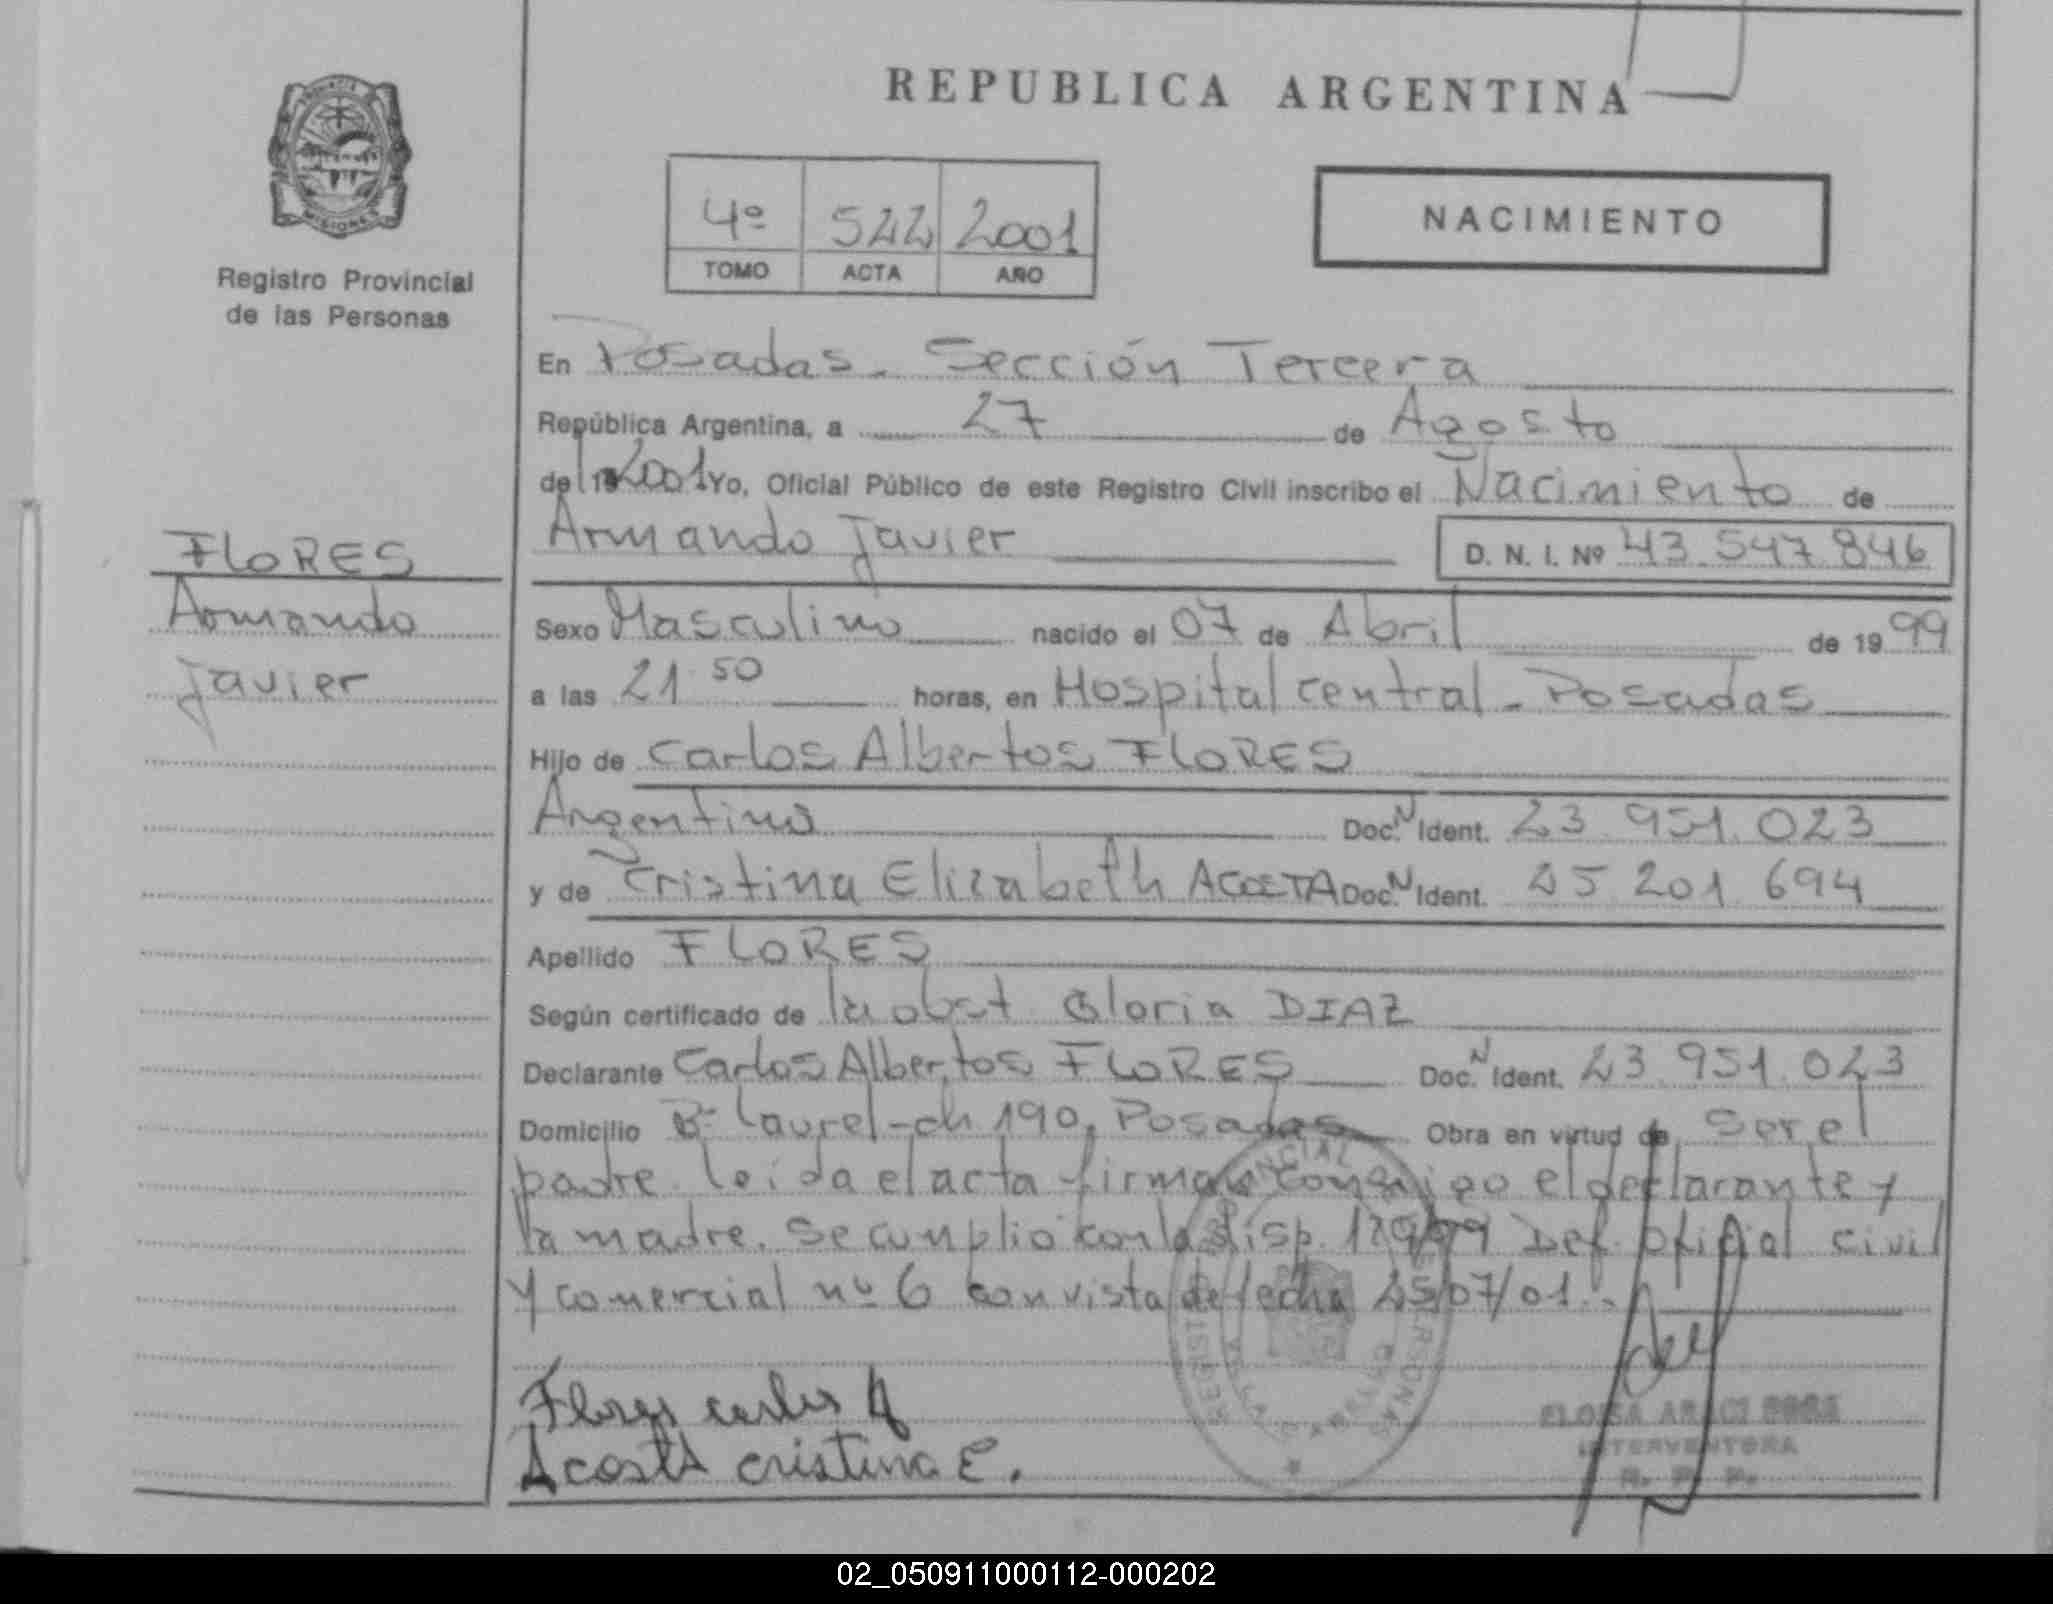 REPUBLICA ARGENTINA
MISIONES
Registro Provincial
de las Personas
4º 522 2001
TOMO ACTA AÑO
NACIMIENTO
En Posadas. Sección Tercera
República Argentina, a 27 de Agosto
de 19 2001 Yo, Oficial Público de este Registro Civil inscribo el Nacimiento de
Armando Javier D. N. I. Nº 43.547.846
FLORES
Armando
Javier
Sexo Masculino nacido el 07 de Abril de 19 99
a las 21.50 horas, en Hospital central - Posadas
Hijo de Carlos Albertos FLORES
Argentino Doc. N Ident. 23.951.023
y de Cristina Elizabeth ACOSTA Doc. N Ident. 25.201.694
Apellido FLORES
Según certificado de la obst. Gloria DIAZ
Declarante Carlos Albertos FLORES Doc. N Ident. 23.951.023
Domicilio Bº Laurel - ch 190, Posadas Obra en virtud de Ser el
padre. leida el acta firman conmigo el declarante y
la madre. Se cumplio con la disp. 129/99 Def. Oficial civil
y comercial nº 6 con vista de fecha 25/07/01..
Flores carlos A
Acosta cristina E.
ELOISA ARACI
INTERVENTORA
R. P. P.
02_050911000112-000202